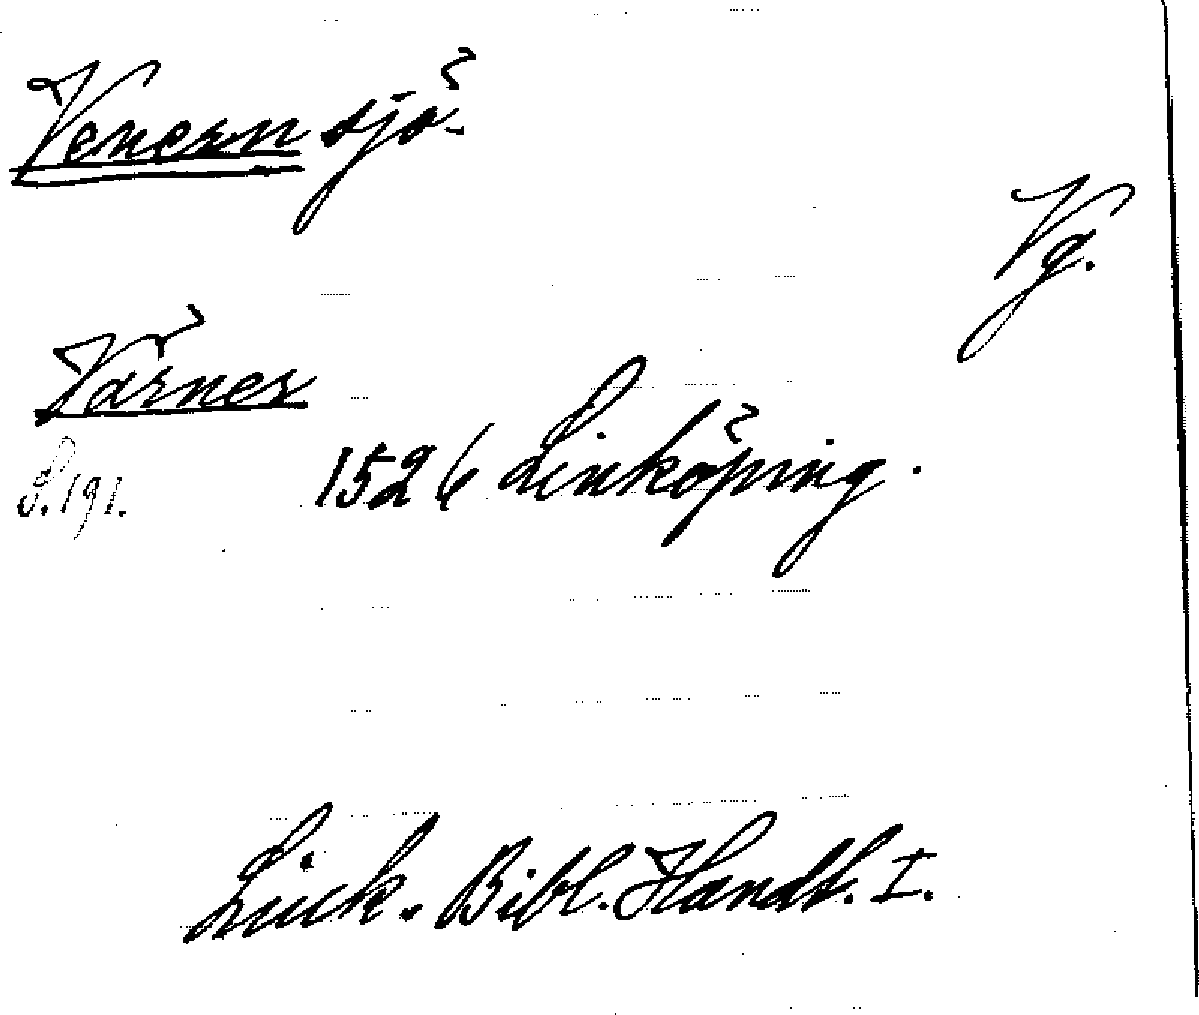 Venern sjö.
Vg.
Värner
S. 191.
1526 Linköping.
Link. Bibl. Handl. I.